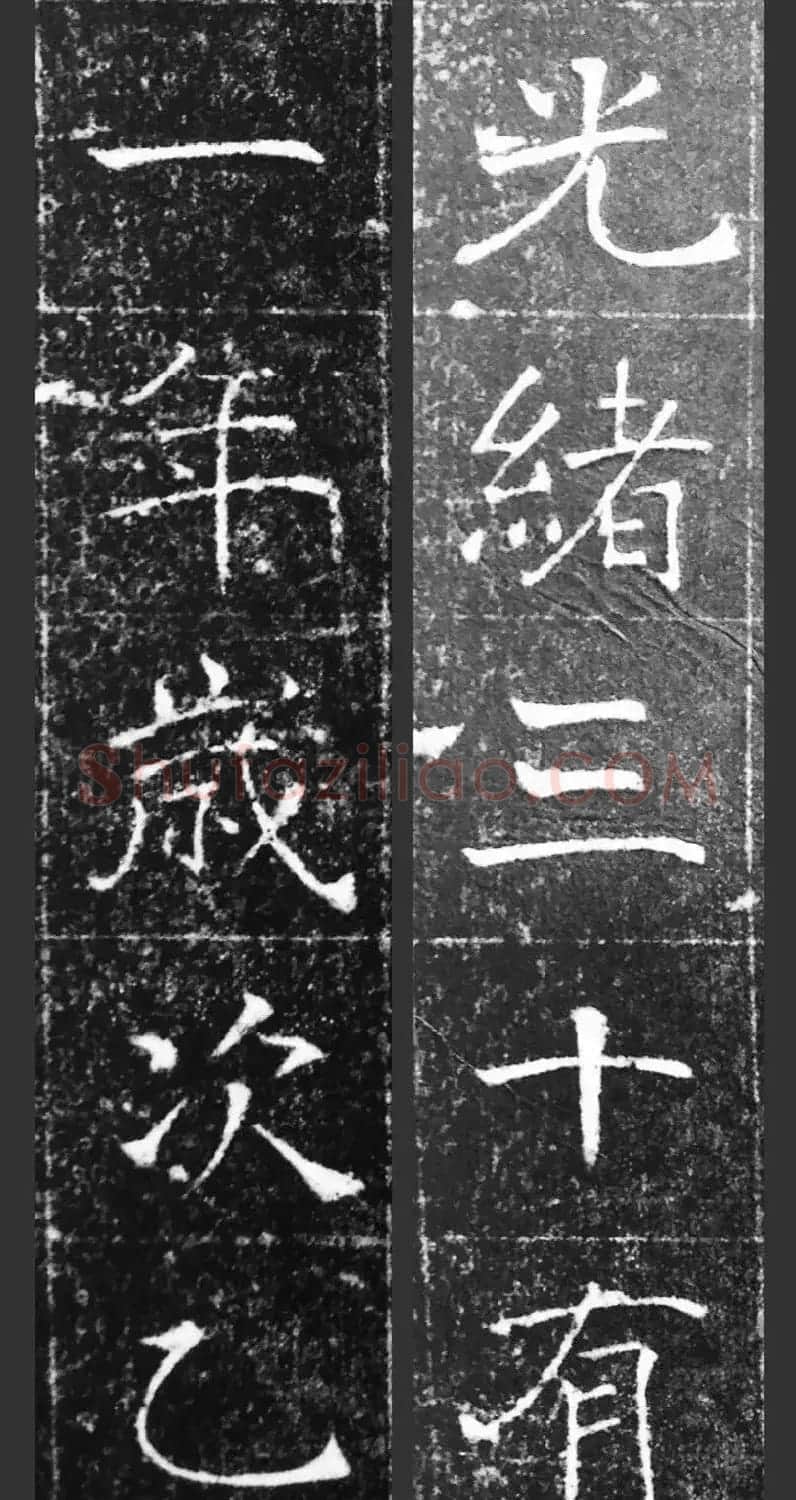 光緒三十有
一年歲次乙
Shufaziliao.COM